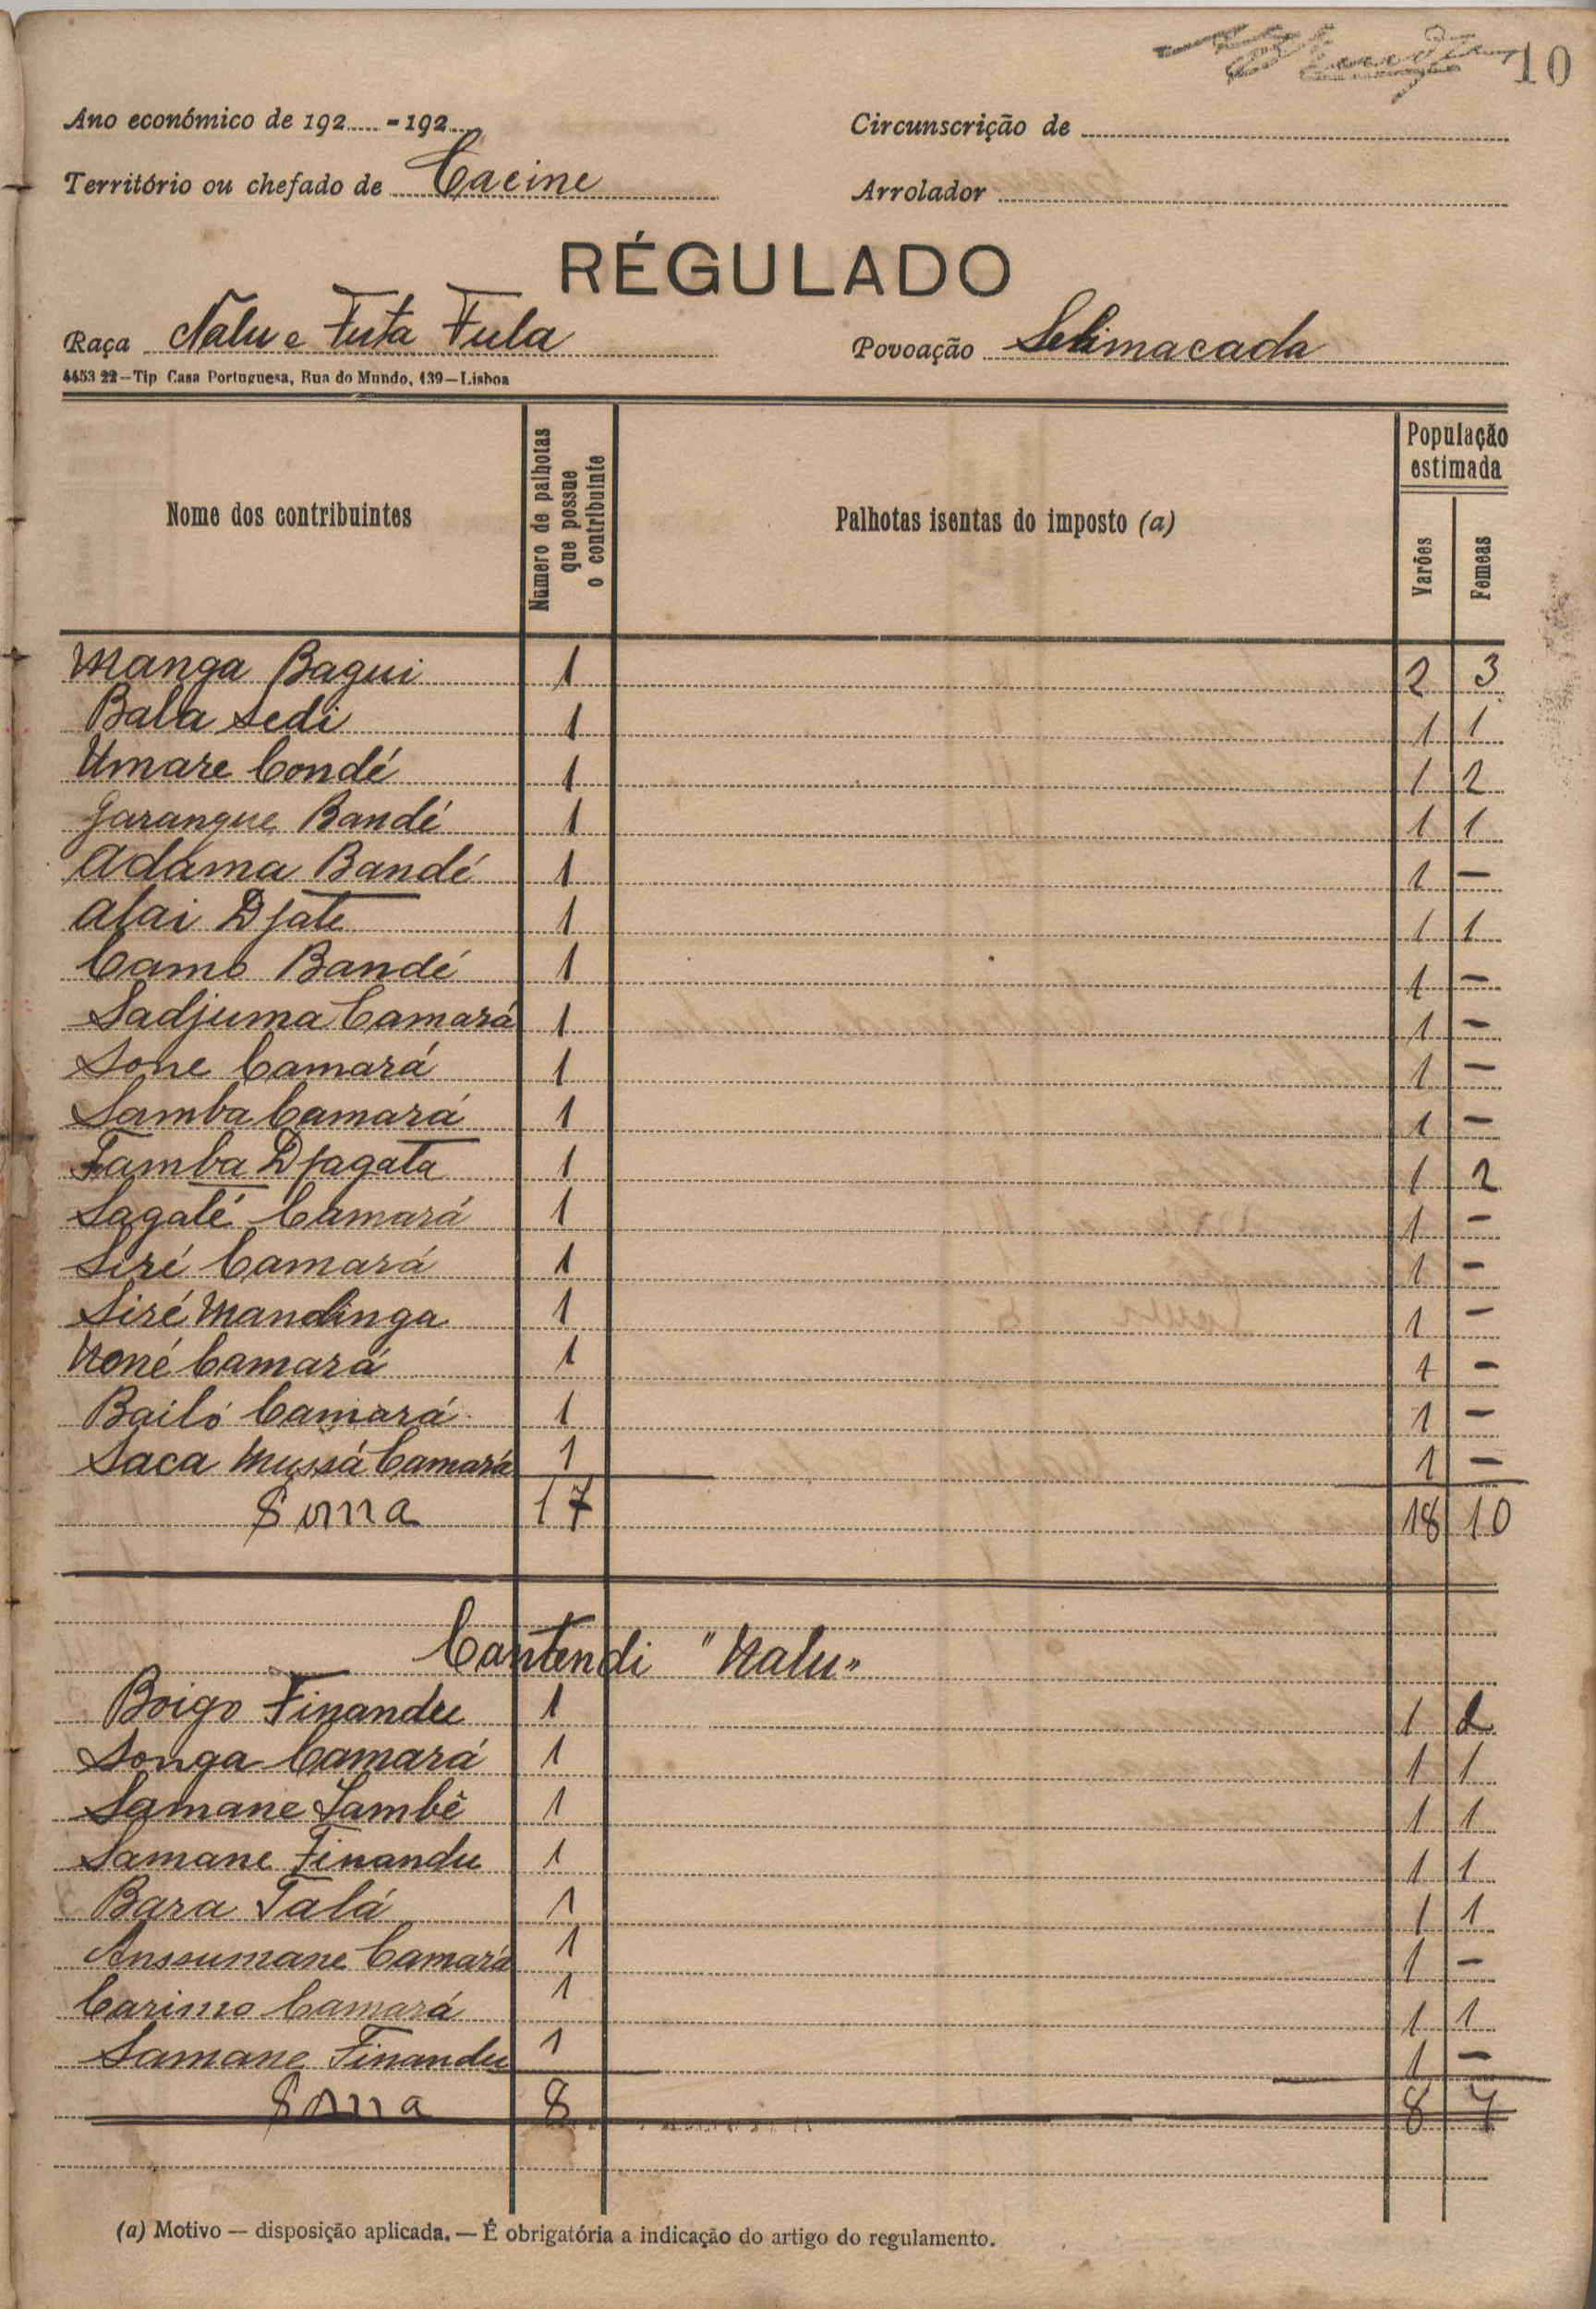 10
Ano económico de 192..... - 192.....
Circunscrição de
Território ou chefado de Cacine
Arrolador
RÉGULADO
Raça Nalu e Futa Fula
Povoação Selimacada
4453 22—Tip Casa Portuguesa, Rua do Mundo, 139—Lisboa
Nome dos contribuintes
Numero de palhotas que possue o contribuinte
Palhotas isentas do imposto (a)
População estimada
Varões
Femeas
Manga Bagui 1 2 3
Bala Sedi 1 1 1
Umare Condé 1 1 2
Garangue Bandé 1 1 1
Adama Bandé 1 1 —
Alai Djate 1 1 1
Camo Bandé 1 1 —
Sadjuma Camará 1 1 —
Sone Camará 1 1 —
Samba Camará 1 1 —
Famba Djagata 1 1 2
Sagalé Camará 1 1 —
Siré Camará 1 1 —
Siré Mandinga 1 1 —
Noné Camará 1 1 —
Bailó Camará 1 1 —
Saca Mussá Camará 1 1 —
Soma 17 18 10
Cantendi "Nalu"
Boigo Finandu 1 1 2
Songa Camará 1 1 1
Samane Sambê 1 1 1
Samane Finandu 1 1 1
Bara Talá 1 1 1
Anssumane Camará 1 1 —
Carimo Camará 1 1 1
Samane Finandu 1 1 —
Soma 8 8 7
(a) Motivo — disposição aplicada. — É obrigatória a indicação do artigo do regulamento.